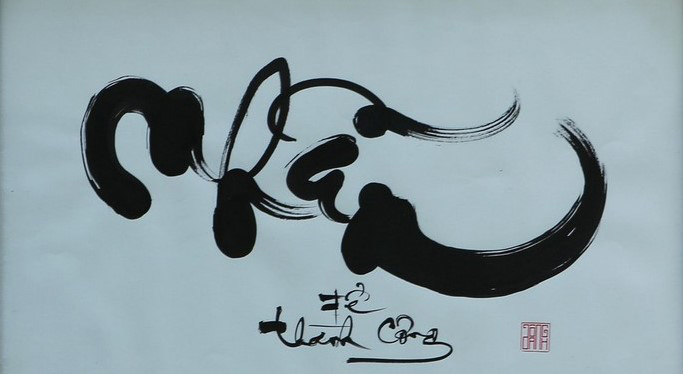 Nhẫn
để
thành Công